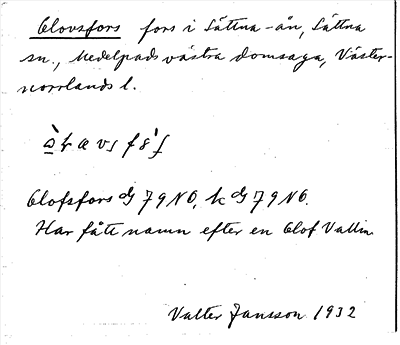 Olovsfors fors i Sättna-ån, Sättna
sn., Medelpads västra domsaga, Väster-
norrlands l.
Olofsfors dG 79 NO, k dG 79 NO.
Har fått namn efter en Olof Vallin
Valter Jansson 1932